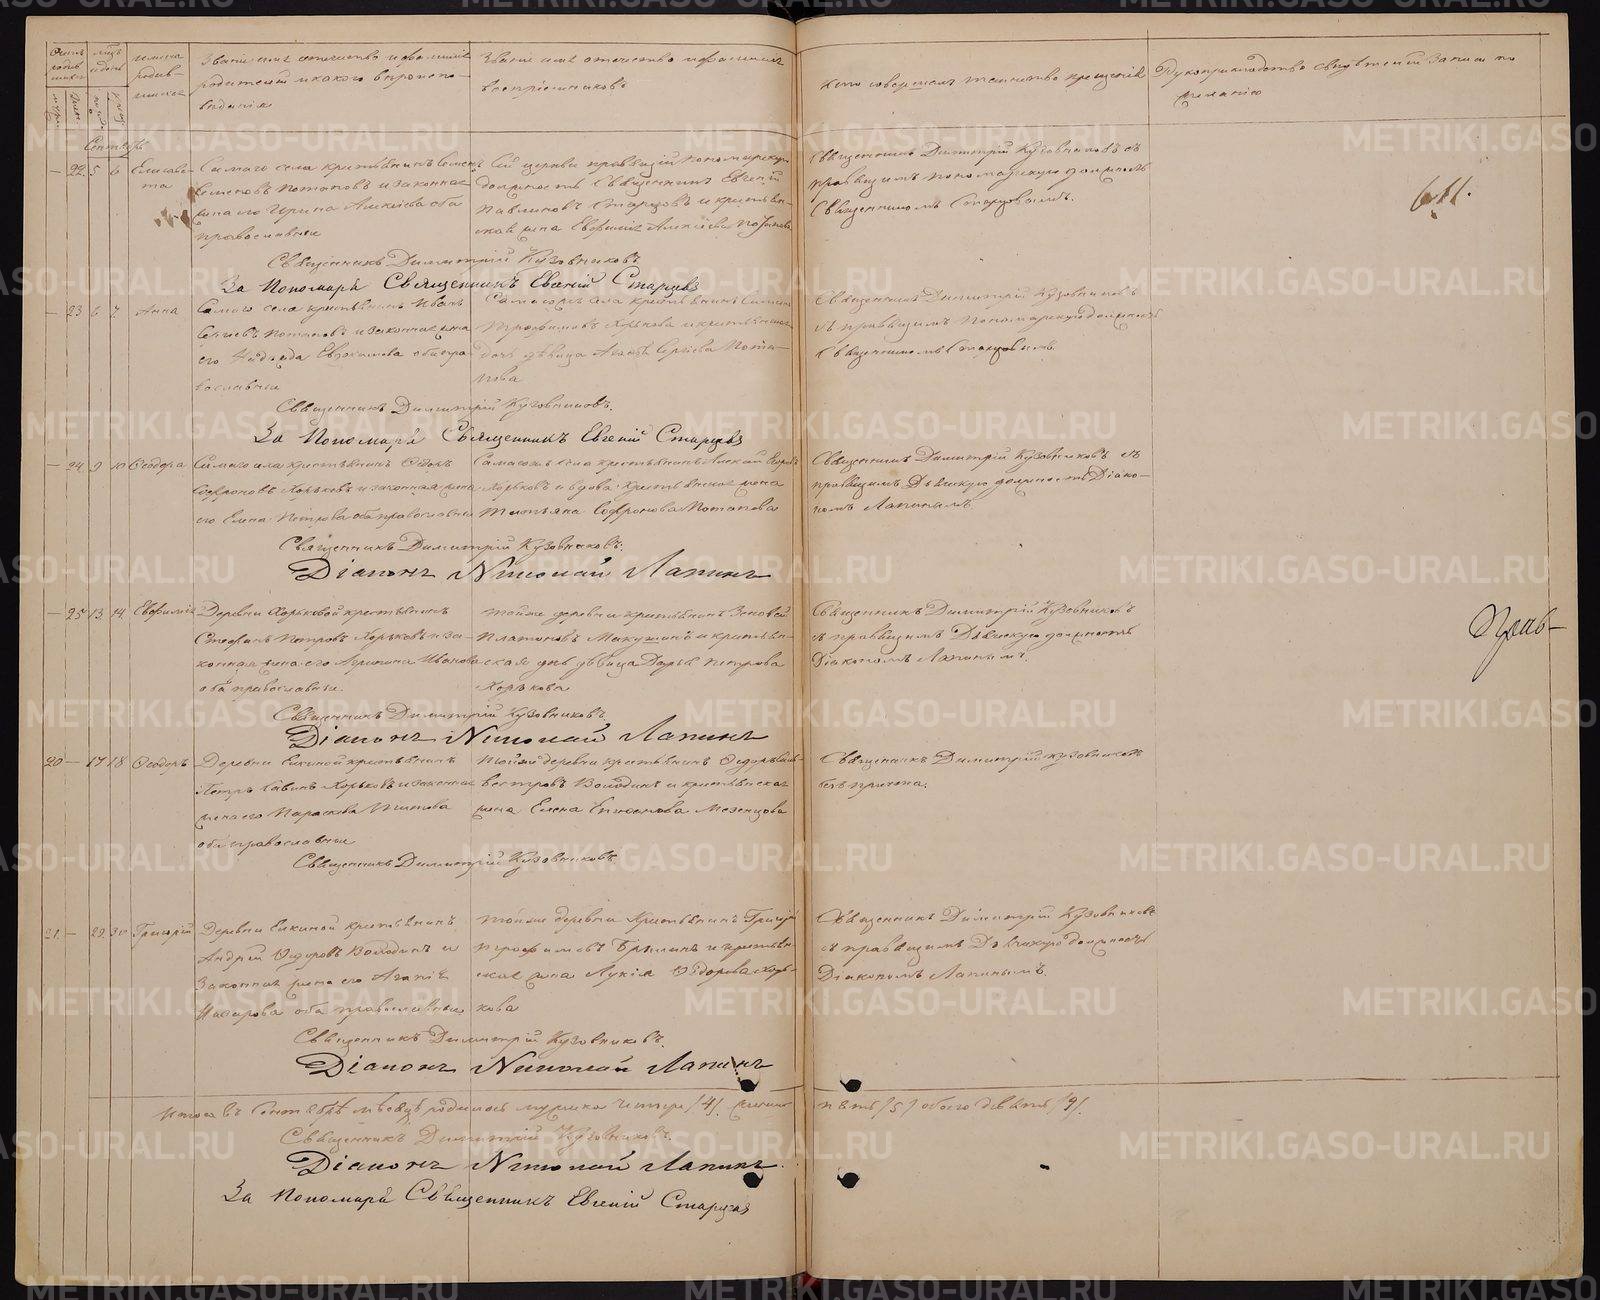 Счетъ родив-шихся
мѣсяцъ и день
имена родив-шихся
Званіе имя отчество и фамилія
родителей и какого вѣроиспо-
вѣданія
Званіе имя отчество и фамилія
воспріемниковъ
Кто совершалъ таинство крещенія
Рукоприкладство свидѣтелей записи по
желанію
Сентябрь
— 22. 5 6 Елисаве-
та
Самаго села крестьянинъ Семенъ
Семеновъ Потаповъ и законная
жена его Ирина Алексіева оба
православные
Сей церкви правящій пономарскую
должность Священникъ Евгеній
Павлиновъ Старцевъ и крестьян-
ская жена Евфимія Алексіева Потапова
Священникъ Димитрій Кузовниковъ съ
правящимъ пономарскую должность
Священникомъ Старцовымъ.
611.
Священникъ Димитрій Кузовниковъ
За Пономаря Священникъ Евгеній Старцевъ
— 23 6 7 Анна
Самаго села крестьянинъ Иванъ
Сергіевъ Потаповъ и законная жена
его Надежда Евдокимова оба пра-
вославные
Самаго села крестьянинъ
Трофимовъ Хорькова и крестьянская
дочь дѣвица Сергіева Пота-
пова
Священникъ Димитрій Кузовниковъ
съ правящимъ пономарскую должность
Священникомъ Старцовымъ
Священникъ Димитрій Кузовниковъ.
За Пономаря Священникъ Евгеній Старцевъ
— 24. 9 10 Ѳеодора
Самаго села крестьянинъ
Софроновъ Хорьковъ и законная жена
его Елена Петрова оба православные
Самаго села крестьянинъ Алексій
Хорьковъ и вдова крестьянская жена
Татьяна Софронова Потапова
Священникъ Димитрій Кузовниковъ съ
правящимъ Дьячкую должность Діако-
номъ Лапинымъ
Священникъ Димитрій Кузовниковъ.
Діаконъ Николай Лапинъ
— 25 13. 14. Евфимія
Деревни Хорьковой крестьянинъ
Стефанъ Петровъ Хорьковъ и за-
конная жена его Агрипина Иванова
оба православные
Тойже деревни крестьянинъ Зиновей
Платоновъ Макушинъ и крестьян-
ская дочь дѣвица Дарья Петрова
Хорькова
Священникъ Димитрій Кузовниковъ
съ правящимъ Дьячкую должность
Діакономъ Лапинымъ.
Священникъ Димитрій Кузовниковъ.
Діаконъ Николай Лапинъ
20 — 17 18 Ѳеодоръ
Деревни Елкиной крестьянинъ
Петръ Савинъ Хорьковъ и законная
жена его Параскева Титова
оба православные
Тойже деревни крестьянинъ Ѳедоръ Силь-
вестровъ Володинъ и крестьянская
жена Елена Мезенцова
Священникъ Димитрій Кузовниковъ
безъ причта.
Священникъ Димитрій Кузовниковъ
21. — 29. 30 Григорій
Деревни Елкиной крестьянинъ
Андрей Ѳедоровъ Володинъ и
законная жена его Агапія
Назарова оба православные
Тойже деревни крестьянинъ Григорій
Трофимовъ Брылинъ и крестьян-
ская жена Лукія Ѳедорова Хорь-
кова
Священникъ Димитрій Кузовниковъ
съ правящимъ Дьячкую должность
Діакономъ Лапинымъ.
Священникъ Димитрій Кузовниковъ.
Діаконъ Николай Лапинъ
Итого въ Сентябрѣ мѣсяцѣ родилось мужска четыре /4/. женска пять /5/ обоего девять /9/.
Священникъ Димитрій Кузовниковъ.
Діаконъ Николай Лапинъ.
За Пономаря Священникъ Евгеній Старцевъ
METRIKI.GASO-URAL.RU